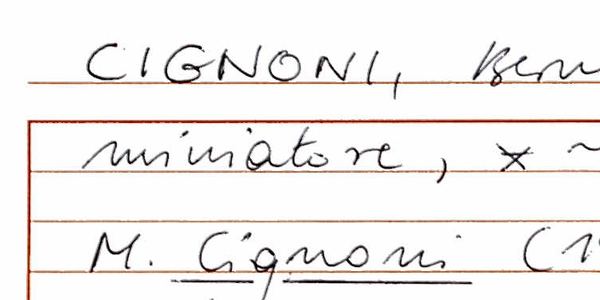 CIGNONI, Bern
miniatore, × ~
M. Cignoni (19